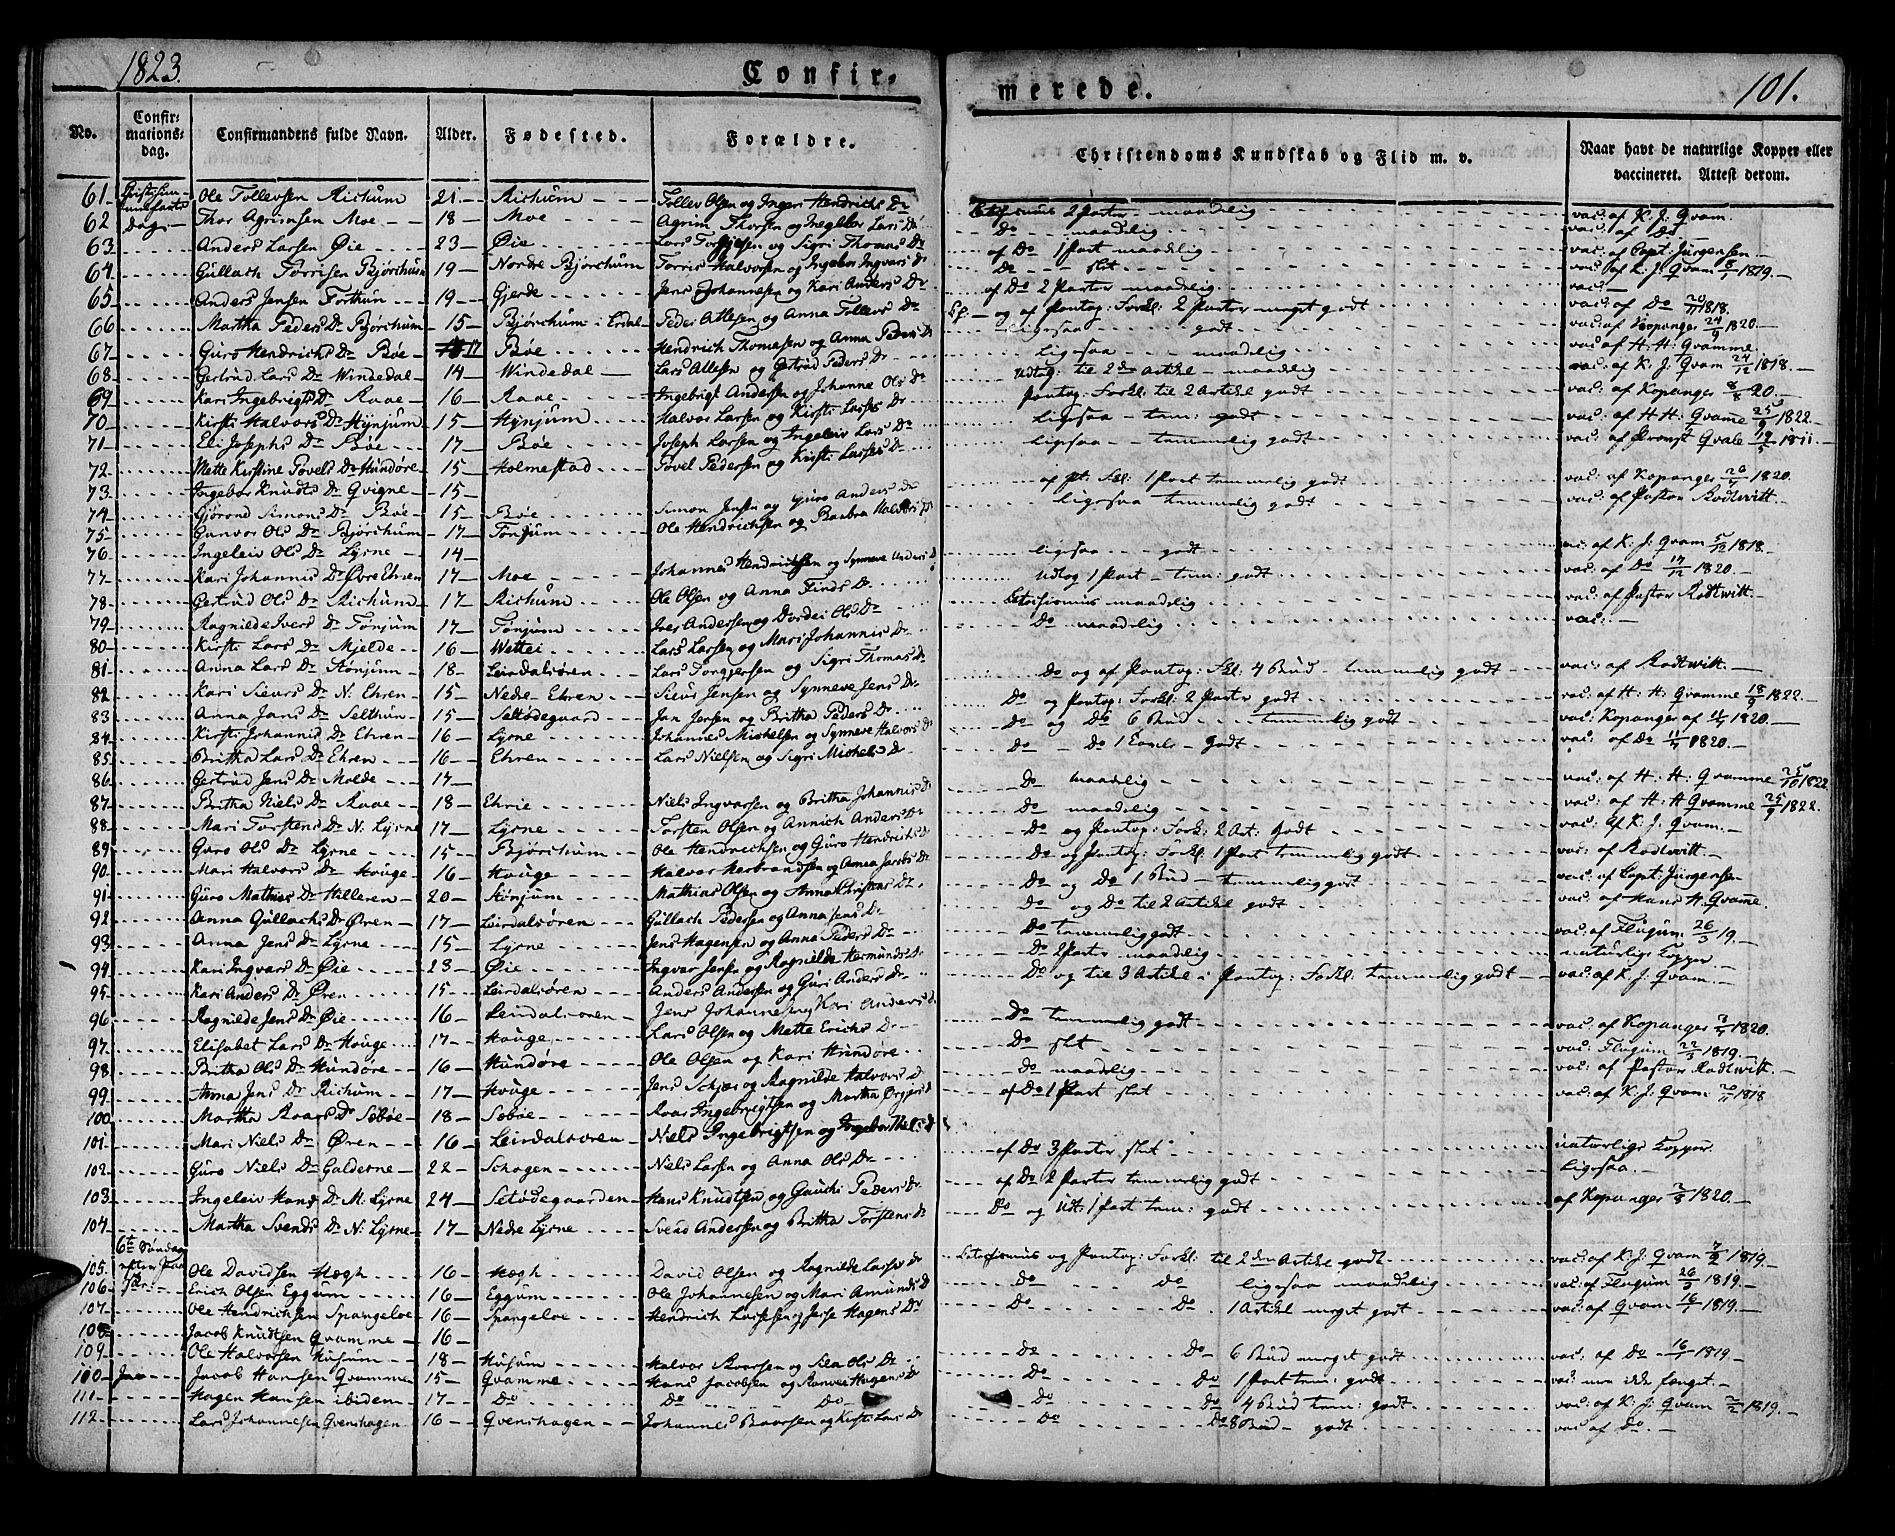 1823.
Confir-
merede.
101.
No.
Confir-
mations-
dag.
Confirmandens fulde Navn.
Alder.
Fødested.
Forældre.
Christendoms Kundskab og Flid m. v.
Naar havt de naturlige Kopper eller
vaccineret. Attest derom.
61 Ole Tollevsen Richum 21 Richum Tollev Olsen og Ingeri Hendrichs Dr 2 Parter maadelig vac: af K. J. Qvam
62 Dag Thor Agrimsen Moe 18 Moe Agrim Thorsen og Ingebor Lars Dr Do maadelig vac: af Do
63 Anders Larsen Øie 23 Øie Lars og Sigri Thomas Dr af Do 1 Part maadelig vac: af Capt: Jürgensen
64 Gullach Torrisen Bjørchum 19 Nordre Bjørchum Torris Halvorsen og Ingebor Ingvars Dr Do slet vac: af K. J. Qvam 1819
65 Anders Jensen Forthun 19 Gjerde Jens Johannesen og Kari Anders Dr af Do 2 Parter maadelig vac:
66 Martha Peders Dr Bjørchum 15 Bjørchum i Peder Atlesen og Anna Tollevs Dr og af Pontop: Forkl: 2 Parter meget godt vac: af Do 1818
67 Guro Hendrichs Dr Bøe 17 Bøe Hendrich Thomesen og Anna Peders Dr ligesaa godt vac: af Kopanger 24/9 1820
68 Gertrud Lars Dr Windedal 14 Windedal Lars Allesen og Gertrud Peders Dr ligesaa maadelig vac: af H. H. Qvamme
69 Kari Ingebrigts Dr Aaae 16 Aaae Ingebrigt Andersen og Johanne Ols Dr Udtog: til 2den Artikel maadelig vac: af K. J. Qvam 24/12 1818
70 Kirsti Halvors Dr Hynjum 15 Hynjum Halvor Larsen og Kirsti Lasses Dr Pontop: Forkl: til 2 Artikel godt vac: af Kopanger 8/8 20
71 Eli Josephs Dr Bøe 17 Bøe Joseph Larsen og Ingeleiv Lars Dr ligesaa tem: godt vac: af H. H. Qvamme 25/9 1822
72 Mette Kirstine Povels Dr Hundøre 15 Holmestad Povel Pedersen og Kirsti Lasses Dr ligesaa temmelig godt vac: af Provst Qvale 1811
73 Ingebor Knudts Dr Qvigne 15
74 Gjørond Simons Dr Bøe 15 Bøe Simon Jensen og Guro Anders Dr af Pt: Fkl: 1 Part temmelig godt vac: af Kopanger 1820
75 Gunvor Ols Dr Bjørchum 17 Tonjum Ole Hendrichsen og Barbra Halvors Dr ligesaa temmelig godt vac: af Pastor Rodtwitt
76 Ingeleiv Ols Dr Lyrne 14
77 Kari Johannis Dr Øvre Ehren 17 Moe Johannes Hendrichsen og Synneve Anders Dr ligesaa godt vac: af K. J. Qvam 1818
78 Gertrud Ols Dr Richum 17 Richum Ole Olsen og Anna Finds Dr Udtog 1 Part tem: godt vac: af Do 17/12 1820
79 Ragnilde Ivers Dr Tonjum 17 Tonjum Iver Andersen og Dordei Ols Dr maadelig vac: af Pastor Rodtwitt
80 Kirsti Lars Dr Mjelde 16 Wettei Lars Larsen og Mari Johannis Dr Do maadelig vac:
81 Anna Lars Dr Hønjum 18 Leirdalsøren Lars Torgjersen og Sigri Thomas Dr Do og af Pontop: Fkl: 4 Bud temmelig godt vac: af Rodtwitt
82 Kari Siurs Dr N: Ehren 15 Nedre Ehren Siur Jensen og Synneve Jens Dr Do og Pontop: Forkl: 2 Parter godt vac: af H: H: Qvamme 18/9 1822
83 Anna Jans Dr Selthun 15 Seltødegaard Jan Jersen og Britha Peders Dr Do og Do 6 Bud temmelig godt vac: Kopanger af 11/7 1820
84 Kirsti Johannis Dr Ehren 16 Lyrne Johannes Michelsen og Synneve Halvors Dr Do Do 1 godt vac: af Do 11/7 1820
85 Britha Lars Dr Ehren 16 Ehren Lars Nielsen og Sigri Michels Dr
86 Gertrud Jens Dr Molde 17 Do maadelig vac: af H: H: Qvamme 25/10 1822
87 Britha Niels Dr Aaae 18 Ehrie Niels Ingvarsen og Britha Johannis Dr Do maadelig vac: af H: H Qvamme 25/9 1822
88 Mari Torstens Dr N: Lyrne 17 Lyrne Torsten Olsen og Annich Anders Dr Do og Pontop: Fork: 2 Art: godt vac: af K: J: Qvam
89 Guro Ols Dr Lyrne 15 Bjørchum Ole Hendrichsen og Guro Hendrichs Dr Do og Pontop: Forkl: 1 Part temmelig godt vac: af Rodtwitt
90 Mari Halvors Dr Houge 16 Houge Halvor Herbrandsen og Anna Jacobs Dr Do og Do 1 Bud temmelig godt vac: af Capt: Jürgensen
91 Guro Mathias Dr Hilleren 20 Hønjum Mathias Olsen og Anna Christens Dr Do og Do til 2 Artikel godt vac: af Hans H. Qvamme
92 Anna Gullachs Dr Øren 17 Leirdalsøren Gullach Pedersen og Anna Jens Dr Do temmelig godt vac: af Flugum 26/3 19
93 Anna Jens Dr Lyrne 15 Lyrne Jens Hagensen og Anna Peders Dr Do 2 Parter maadelig naturlige Kopper
94 Kari Ingvars Dr Øie 23 Øie Ingvar Jensen og Ragnilde Hermunds Dr Do og til 3 Artikel i Pontop: Forkl: temmelig godt vac: af K. J. Qvam
95 Kari Anders Dr Øren 15 Leirdalsøren Anders Andersen og Guri Anders Dr
96 Ragnilde Jens Dr Øie 16 Leirdalsøren Jens Johannesen og Kari Anders Dr Do temmelig godt vac: af Kopanger 1820
97 Elisabet Lars Dr Houge 17 Houge Lars Olsen og Mette Erichs Dr Do slet vac: Flugum 22/3 1819
98 Britha Ols Dr Hundøre 16 Hundøre Ole Olsen og Kari Hundøre Do maadelig vac: af Pastor Rodtwitt
99 Anna Jens Dr Richum 17 Houge Jens Schjær og Ragnilde Halvors Dr af Do 1 Part slet vac: af K: J: Qvam 1818
100 Martha Roars Dr Sæbøe 18 Sæbøe Roar Ingebrigtsen og Martha Ørjars Dr
101 Mari Niels Dr Øren 16 Leirdalsøren Niels Ingebrigtsen og Ingebor af Do 3 Parter slet naturlige Kopper
102 Guro Niels Dr Galderne 22 Schogen Niels Larsen og Anna Ols Dr af Do 2 Parter temmelig godt ligesaa
103 Ingeleiv Hans Dr M: Lyrne 24 Seltødegaarden Hans Knudtsen og Gauchi Peders Dr Do og Udt: 1 Part tem: godt af Kopanger 1820
104 Martha Svends Dr N: Lyrne 17 Nedre Lyrne Svend Andersen og Britha Torstens Dr
6te Søndag
105 efter Ole Davidsen Hægh 16 Hægh David Olsen og Ragnilde Larses Dr og Pontop: Forkl: til 2den Artikel godt vac: af K: J: Qvam 1819
106 Erich Olsen Eggum 16 Eggum Ole Johannesen og Mari Amunds Dr Do Do ligesaa maadelig vac: af Flugum 26/3 1819
107 Ole Hendrichsen Spangeloe 16 Spangeloe Hendrich Larsesen og Jerse Hagens Dr Do Do 1 Artikel meget godt vac: af Qvam 16/7 1819
108 Jacob Knudtsen Qvamme 16
109 Ole Halvorsen Husum 18 Husum Halvor og Sila Ols Dr Do Do 6 Bud meget godt vac: af Do 16/7 1819
110 Jacob Hansen Qvamme 15 Qvamme Hans Jacobsen og Ranvei Hagens Dr Do Do 1 Part tem: godt vac: men ikke fænget
111 Hagen Hansen ibidem 17 Do Do Do Do Do 4 Bud tem: godt vac: af K: J: Qvam 1819
112 Lars Johannesen Qvenshagen 16 Qvenshagen Johannes Baarsen og Kirsti Lars Dr Do Do 8 Bud godt vac: af Do